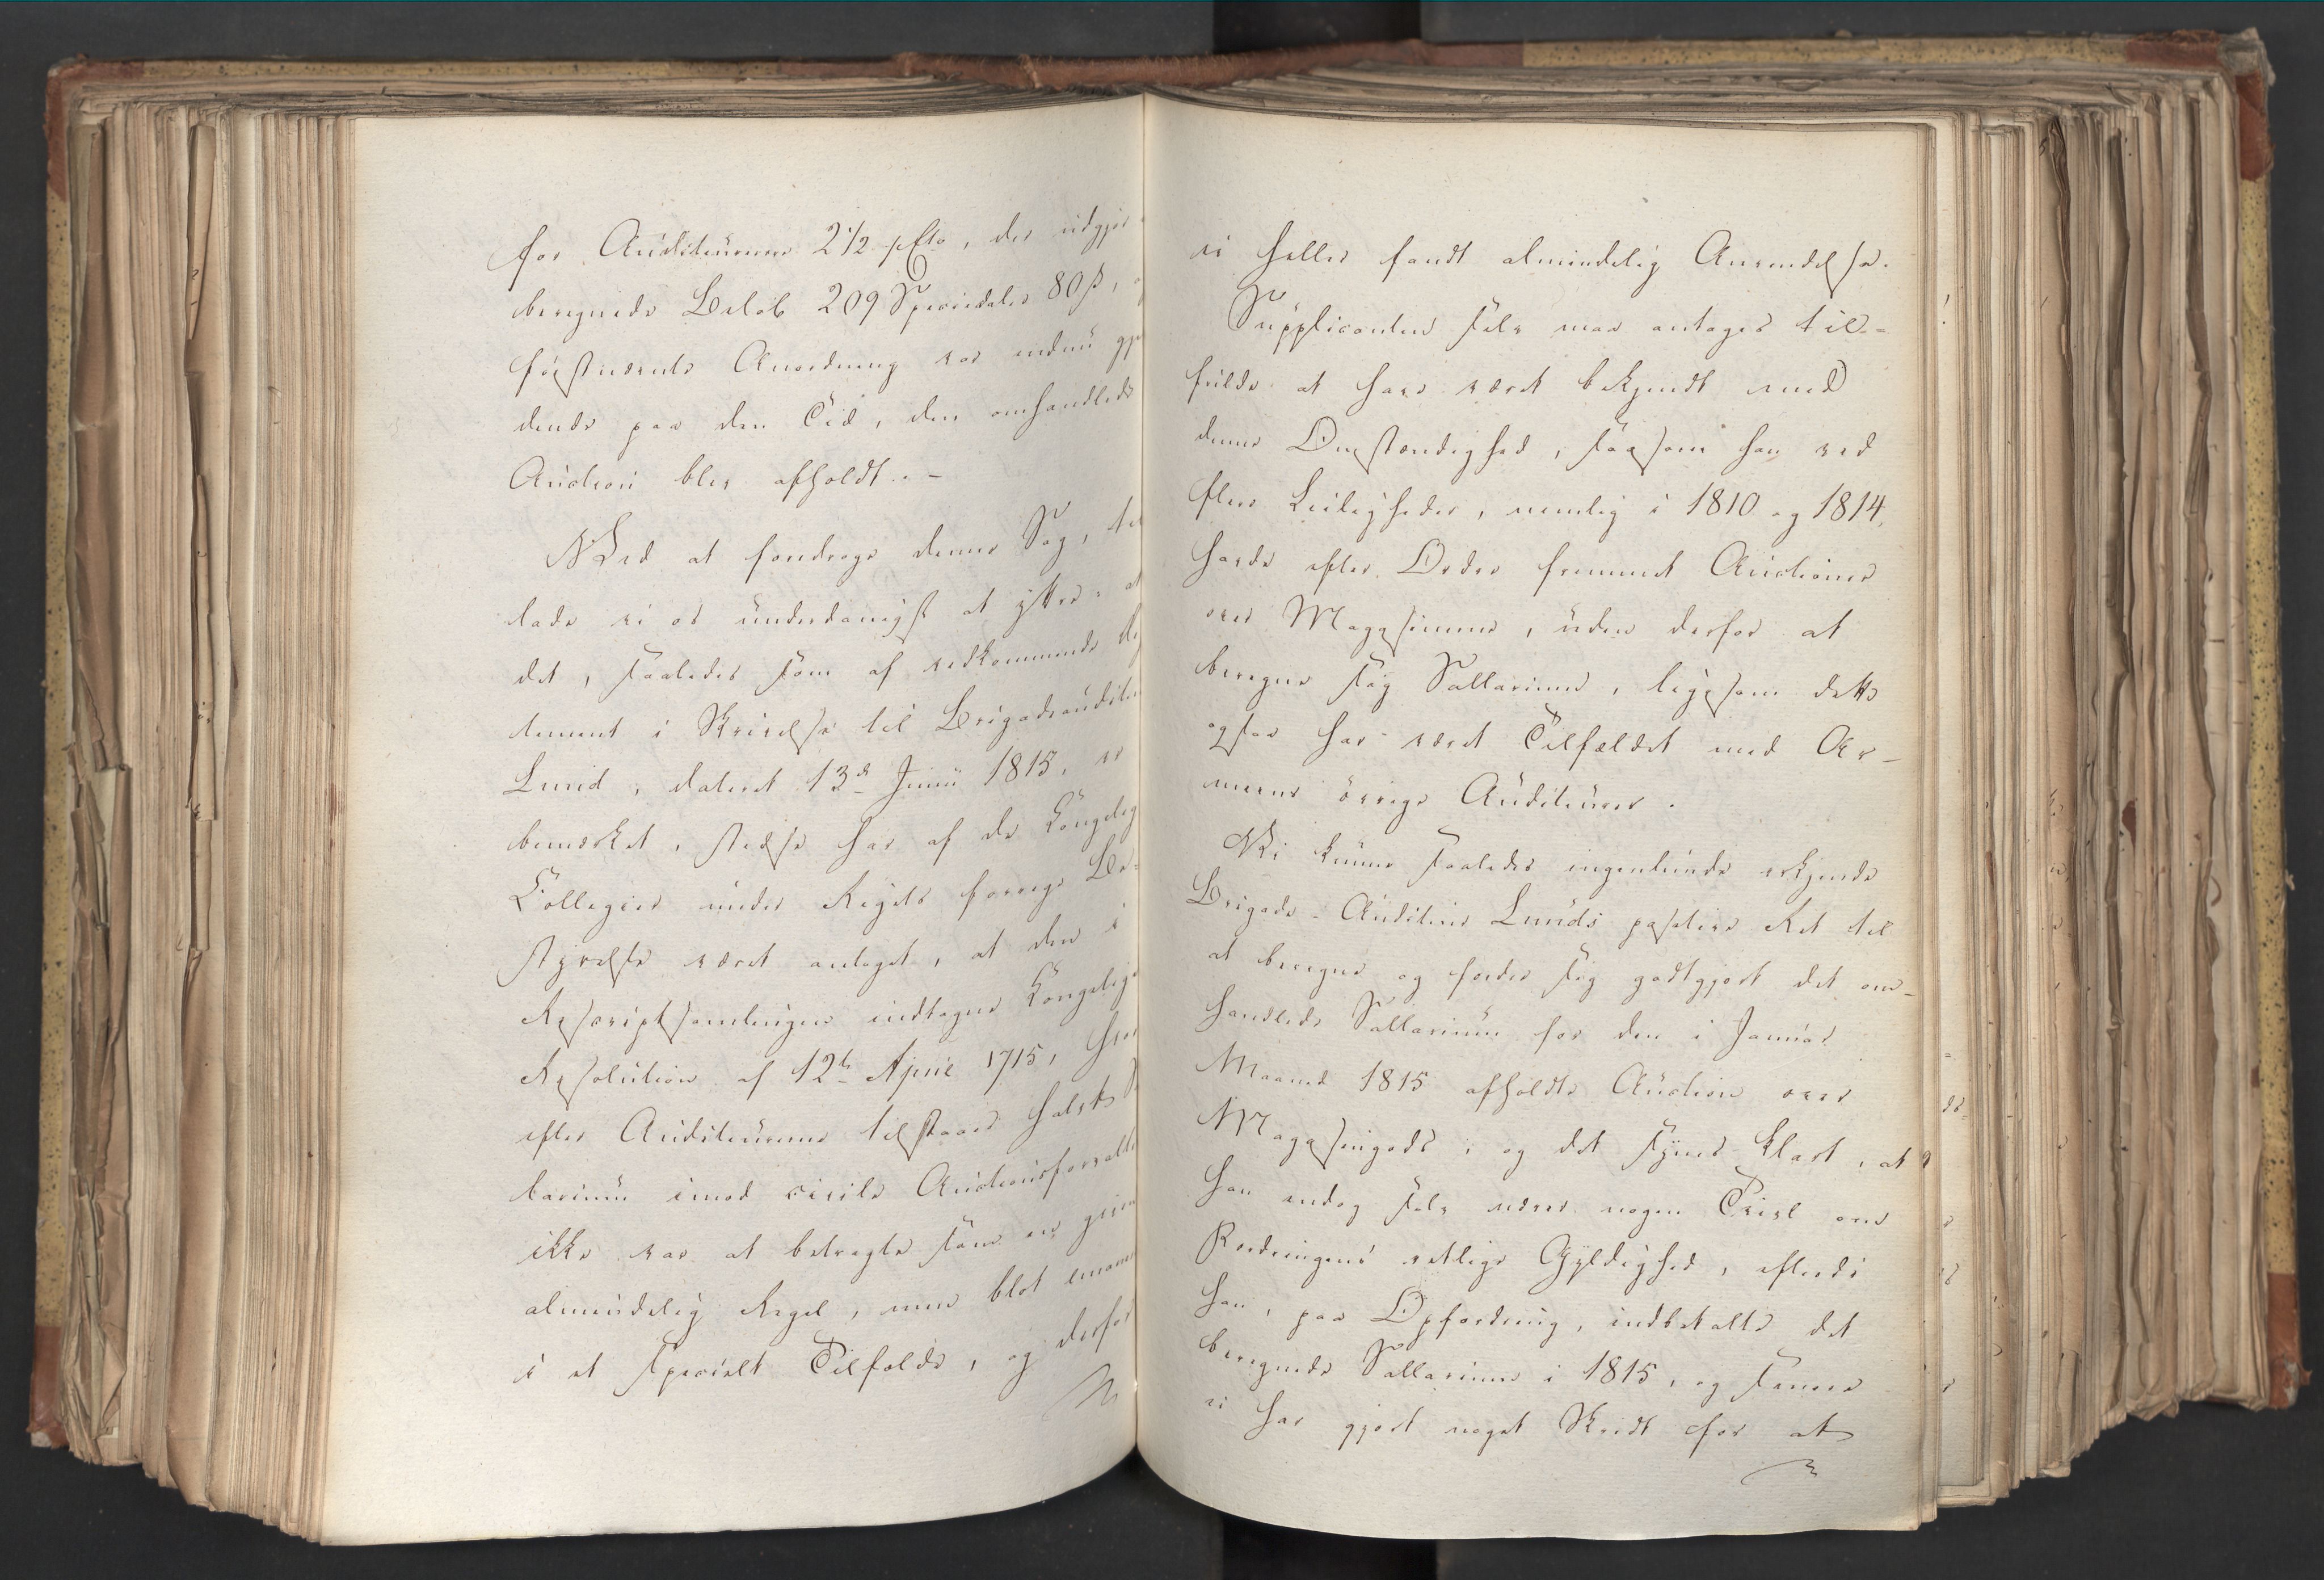 for Auditeurerne 2 1/2 pCto, der udgjør
beregnede Beløb 209 Speciedaler 80 ß,
førstnævnte Anordning var endnu gje
dende paa den Tid, den omhandlede
Auction blev afholdt. –
Ved at foredrage denne Sag, til
lade vi os underdanigst at yttre: at
det, saaledes som af vedkommende
tement i Skrivelse til Brigadeauditeu
Lund, dateret 13d Junii 1815, er
bemærket, stedse har af de Kongelig
Collegier under Rigets forrige Be-
styrelse været antaget, at den i
Rescriptsamlingen indtagne Kongelige
Resolution af 12te April 1715, hvor
efter Auditeurerne tilstaaes halvt S
larium imod civile Auctionsforvalte
ikke var at betragte som en gjen
almindelig Regel, men blot emanere
i et specielt Tilfælde, og derfor
ei heller fandt almindelig Anvendelse.
Supplicanten selv maa antages til-
fulde at have været bekjendt med
denne Omstændighed, saasom han ved
flere Leiligheder, nemlig i 1810 og 1814,
havde efter Ordre fremmet Auctioner
over Magasinerne, uden derfor at
beregne sig Sallarium, ligesom dette
ogsaa har været Tilfældet med Ar-
meens øvrige Auditeurer.
Vi kunne saaledes ingenlunde erkjende
Brigade-Auditeur Lunds paastaaede Ret til
at beregne og fordre sig godtgjort det om-
handlede Sallarium for den i Januar
Maaned 1815 afholdte Auction over
Magasingods; og det synes klart, at
han endog selv nærer nogen Tvivl om
Fordringens retlige Gyldighed, efterdi
han, paa Opfordring, indbetalte det
beregnede Sallarium i 1815, og senere
ei har gjort noget Skridt for at